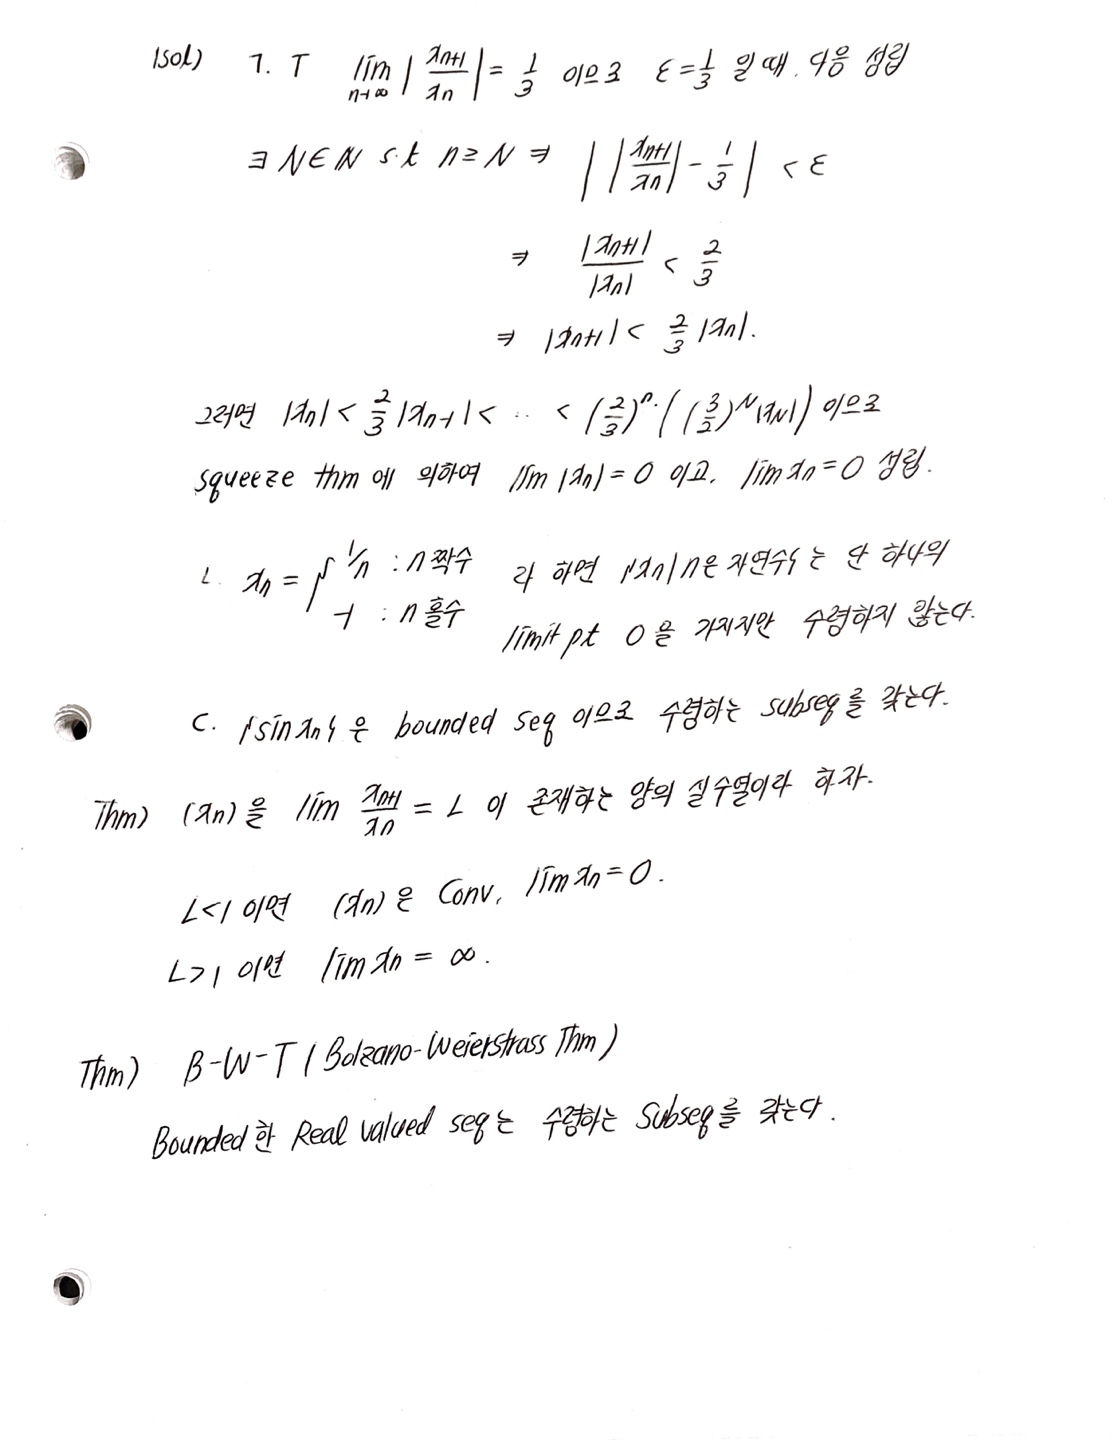 (sol) ㄱ. T lim n→∞ |xn+1/xn| = 1/3 이므로 ε=1/3 일 때. 다음 성립
∃ N∈ℕ s.t n≥N ⇒ | |xn+1/xn| - 1/3 | < ε
⇒ |xn+1|/|xn| < 2/3
⇒ |xn+1| < 2/3 |xn|.
그러면 |xn| < 2/3 |xn-1| < ‥ < (2/3)^n · ((3/2)^N |xN|) 이므로
squeeze thm 에 의하여 lim |xn| = 0 이고, lim xn = 0 성립.
ㄴ. xn = { 1/n : n 짝수
-1 : n 홀수
라 하면 {xn | n은 자연수} 는 단 하나의
limit pt 0을 가지지만 수렴하지 않는다.
ㄷ. {sin xn} 은 bounded seq 이므로 수렴하는 subseq를 갖는다.
Thm) (xn) 을 lim xn+1/xn = L 이 존재하는 양의 실수열이라 하자.
L<1 이면 (xn) 은 Conv, lim xn = 0.
L>1 이면 lim xn = ∞.
Thm) B-W-T (Bolzano-Weierstrass Thm)
Bounded 한 Real valued seq는 수렴하는 Subseq를 갖는다.